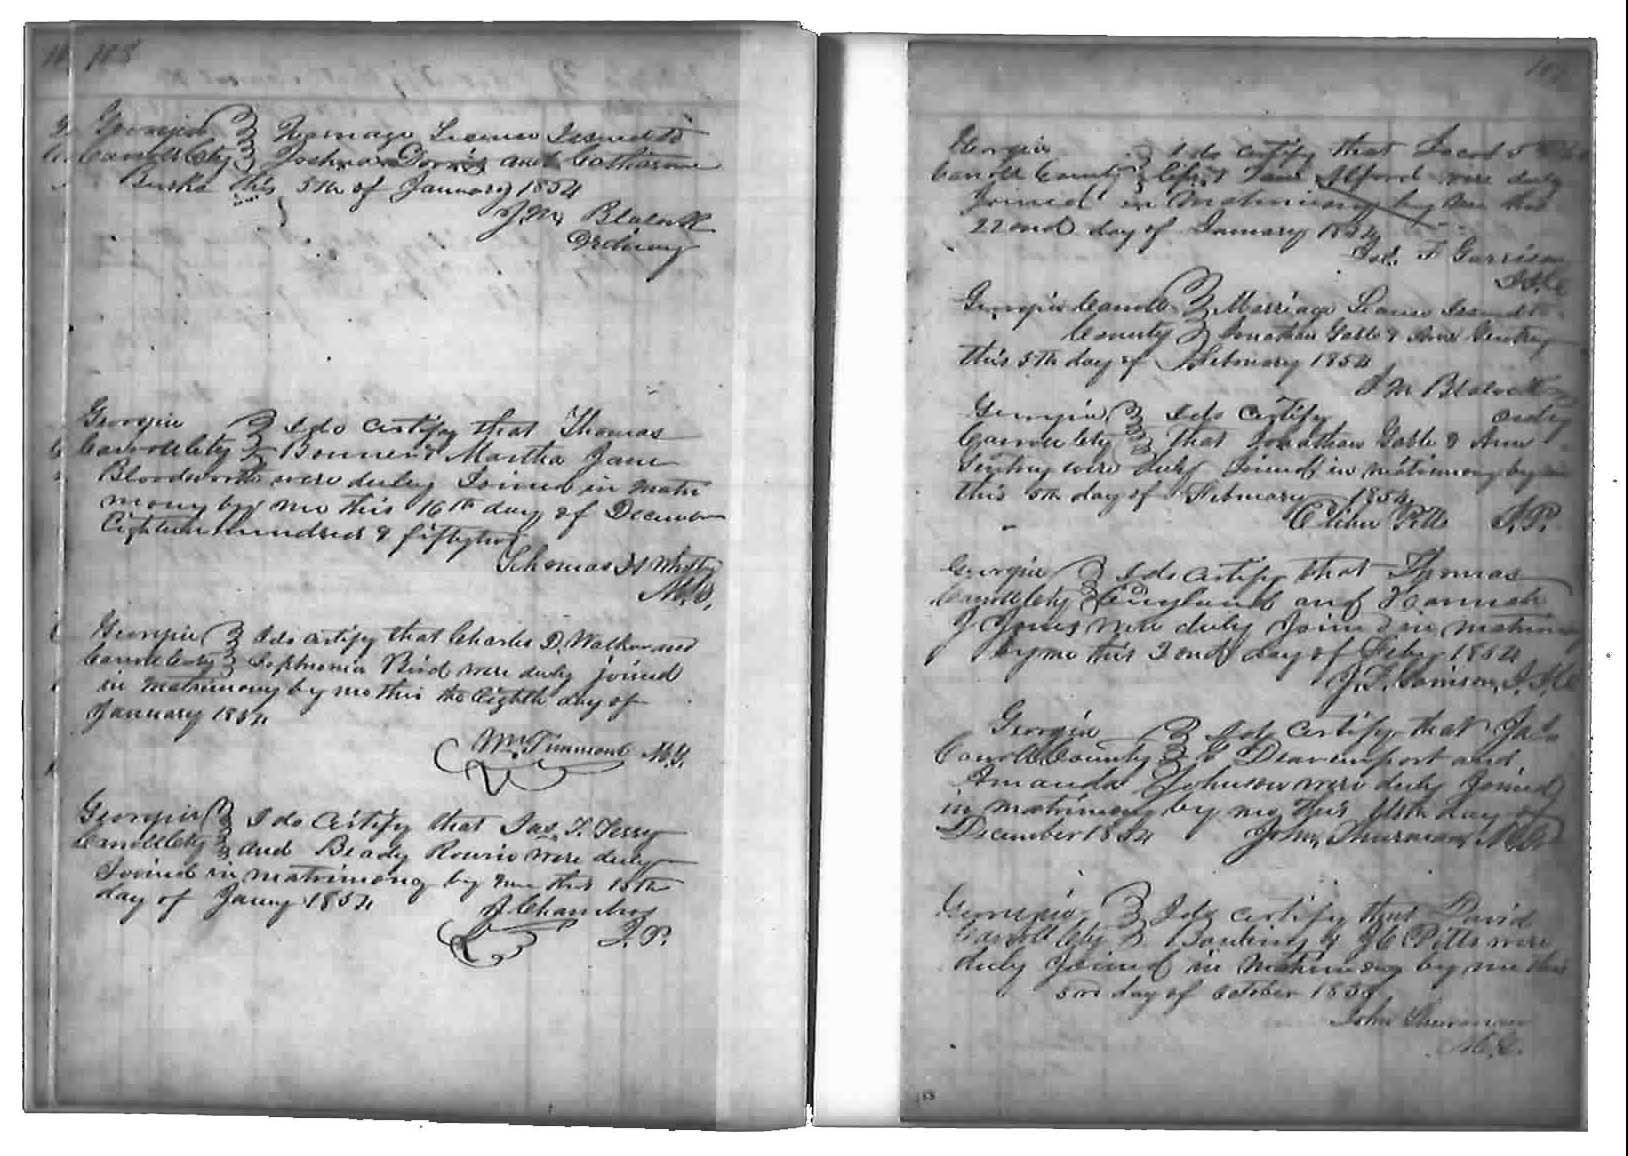 108
Georgia Marriage License Issued to
Carroll Cty Joshua Dorris and Catharine
Burke this 5th of January 1854
J. M. Blalock
Ordinary
Georgia I do certify that Thomas
Carroll Cty Bonner & Martha Jane
Bloodworth were duly Joined in matri
mony by me this 16th day of December
Eighteen hundred & fiftytwo
Thomas H Whitby
M.G.
Georgia I do certify that Charles D. Walker and
Carroll Cty Sophronia Bird were duly joined
in matrimony by me this the Eighth day of
January 1854
Wm. Timmons M.G.
Georgia I do Certify that Jas. T. Terry
Carroll Cty and Beady were duly
Joined in matrimony by me this 15th
day of Jany 1854
J Chambers
J.P.
Georgia I do certify that Jacob
Carroll County & Jane Alford were duly
Joined in Matrimony by me this
22ond day of January 1854
Jas. F Garrison
J.I.C
Georgia Carroll Marriage License Issued to
County Jonathan Gable & Ann Gentry
this 5th day of February 1854
J M Blalock
ordy
Georgia I do Certify
Carroll Cty that Jonathan Gable & Ann
Gentry were duly Joined in matrimony by
this 5th day of February 1854
Elihu Pitts J.P.
Georgia I do certify that Thomas
Carroll Cty England and Hannah
J Jones were duly Joined in matrimony
by me this day of Feby 1854
J. F. Garrison J.I.C
Georgia I do certify that
Carroll County Deavenport and
Amanda Johnson were duly Joined
in matrimony by me this day of
December 1854 John Thurman M.G.
Georgia I do certify that David
Carroll Cty & J C Pitts were
duly Joined in Matrimony by me this
3rd day of October
John Thurman
M.G.